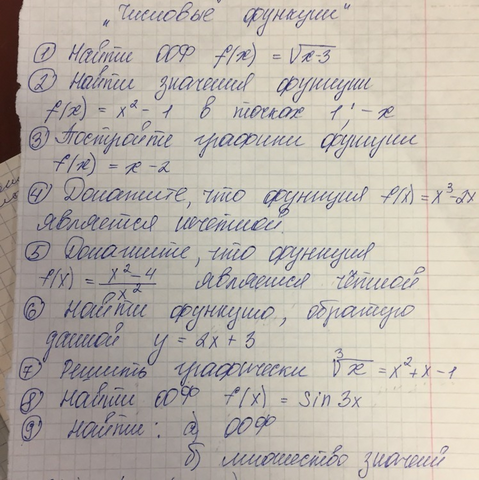 "Числовые функции"
① Найти ООФ f(x) = √x-3
② Найти значения функции
f(x) = x² - 1 в точках 1; -x
③ Постройте графики функции
f(x) = x - 2
④ Докажите, что функция f(x) = x³-2x
является нечетной.
⑤ Докажите, что функция
f(x) = x²-4/x² является чётной
⑥ Найти функцию, обратную
данной y = 2x + 3
⑦ Решить графически ∛x = x²+x-1
⑧ Найти ООФ f(x) = sin 3x
⑨ Найти: а) ООФ
б) множество значений